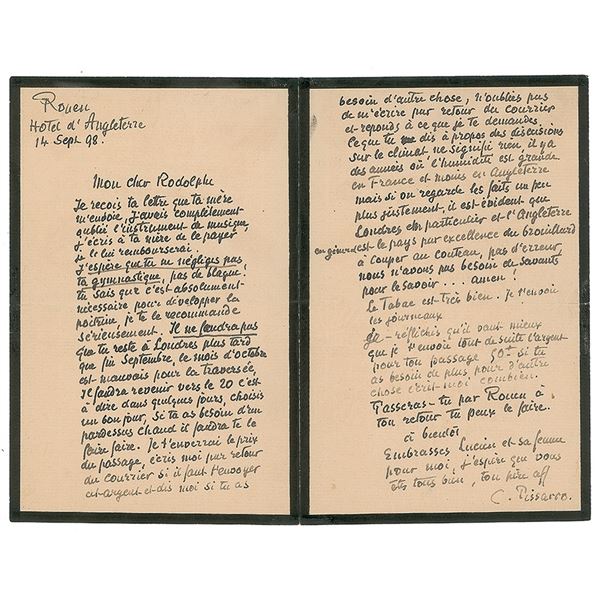 Rouen
Hotel d'Angleterre
14 Sept 98.
Mon cher Rodolphe
Je reçois ta lettre que ta mère
m'envoie, j'avais complètement
oublié l'instrument de musique,
j'écris à ta mère de le payer
je le lui rembourserai.
J'espère que tu ne négliges pas
ta gymnastique, pas de blague!
tu sais que c'est absolument
nécessaire pour développer la
poitrine, je te le recommande
sérieusement. Il ne faudra pas
que tu reste à Londres plus tard
que fin Septembre, le mois d'octobre
est mauvais pour la traversée,
Il faudra revenir vers le 20 c'est
à dire dans quelques jours, choisis
un bon jour, si tu as besoin d'un
pardessus chaud il faudra te le
faire faire. Je t'enverrai le prix
du passage, écris moi par retour
du courrier si il faut t'envoyer
cet argent et dis moi si tu as
besoin d'autre chose, n'oublies pas
de m'écrire par retour du courrier
et reponds à ce que je te demandes.
Ce que tu me dis à propos des discusions
sur le climat ne signifie rien, il y a
des années où l'humidité est grande
en France et moins en Angleterre
mais si on regarde les faits un peu
plus justement, il est évident que
Londres en particulier et l'Angleterre
en général est le pays par excellence du brouillard
à couper au couteau, pas d'erreur,
nous n'avons pas besoin de savants
pour le savoir .... amen!
Le Tabac est très bien. Je t'envoie
les journeaux
J'ai réflechis qu'il vaut mieux
que je t'envoie tout de suite l'argent
pour ton passage 50f si tu
as besoin de plus pour d'autre
chose écrit-moi combien.
Passeras-tu par Rouen à
ton retour tu peux le faire.
à bientôt
Embrasses Lucien et sa femme
pour moi, j'espère que vous
êtes tous bien, ton père aff
C. Pissarro.